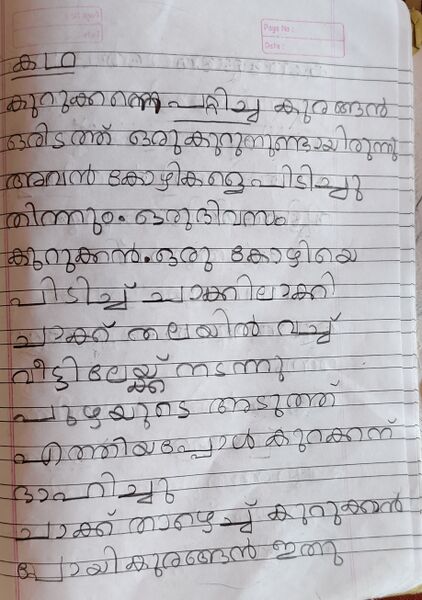 Page No :
Date :
കഥ
കുറുക്കനെ പറ്റിച്ച കുരങ്ങൻ
ഒരിടത്ത് ഒരു കുറുന്നുണ്ടായിരുന്നു
അവൻ കോഴികളെ പിടിച്ചു
തിന്നും. ഒരു ദിവസം
കുറുക്കൻ. ഒരു കോഴിയെ
പിടിച്ച് ചാക്കിലാക്കി
ചാക്ക് തലയിൽ വച്ച്
വീട്ടിലേയ്ക്ക് നടന്നു
പുഴയുടെ അടുത്ത്
എത്തിയപ്പോൾ കുറക്കന്
ദാഹിച്ചു
ചാക്ക് താഴെച്ച് കുറുക്കൻ
പോയി കുരങ്ങൻ ഇതു